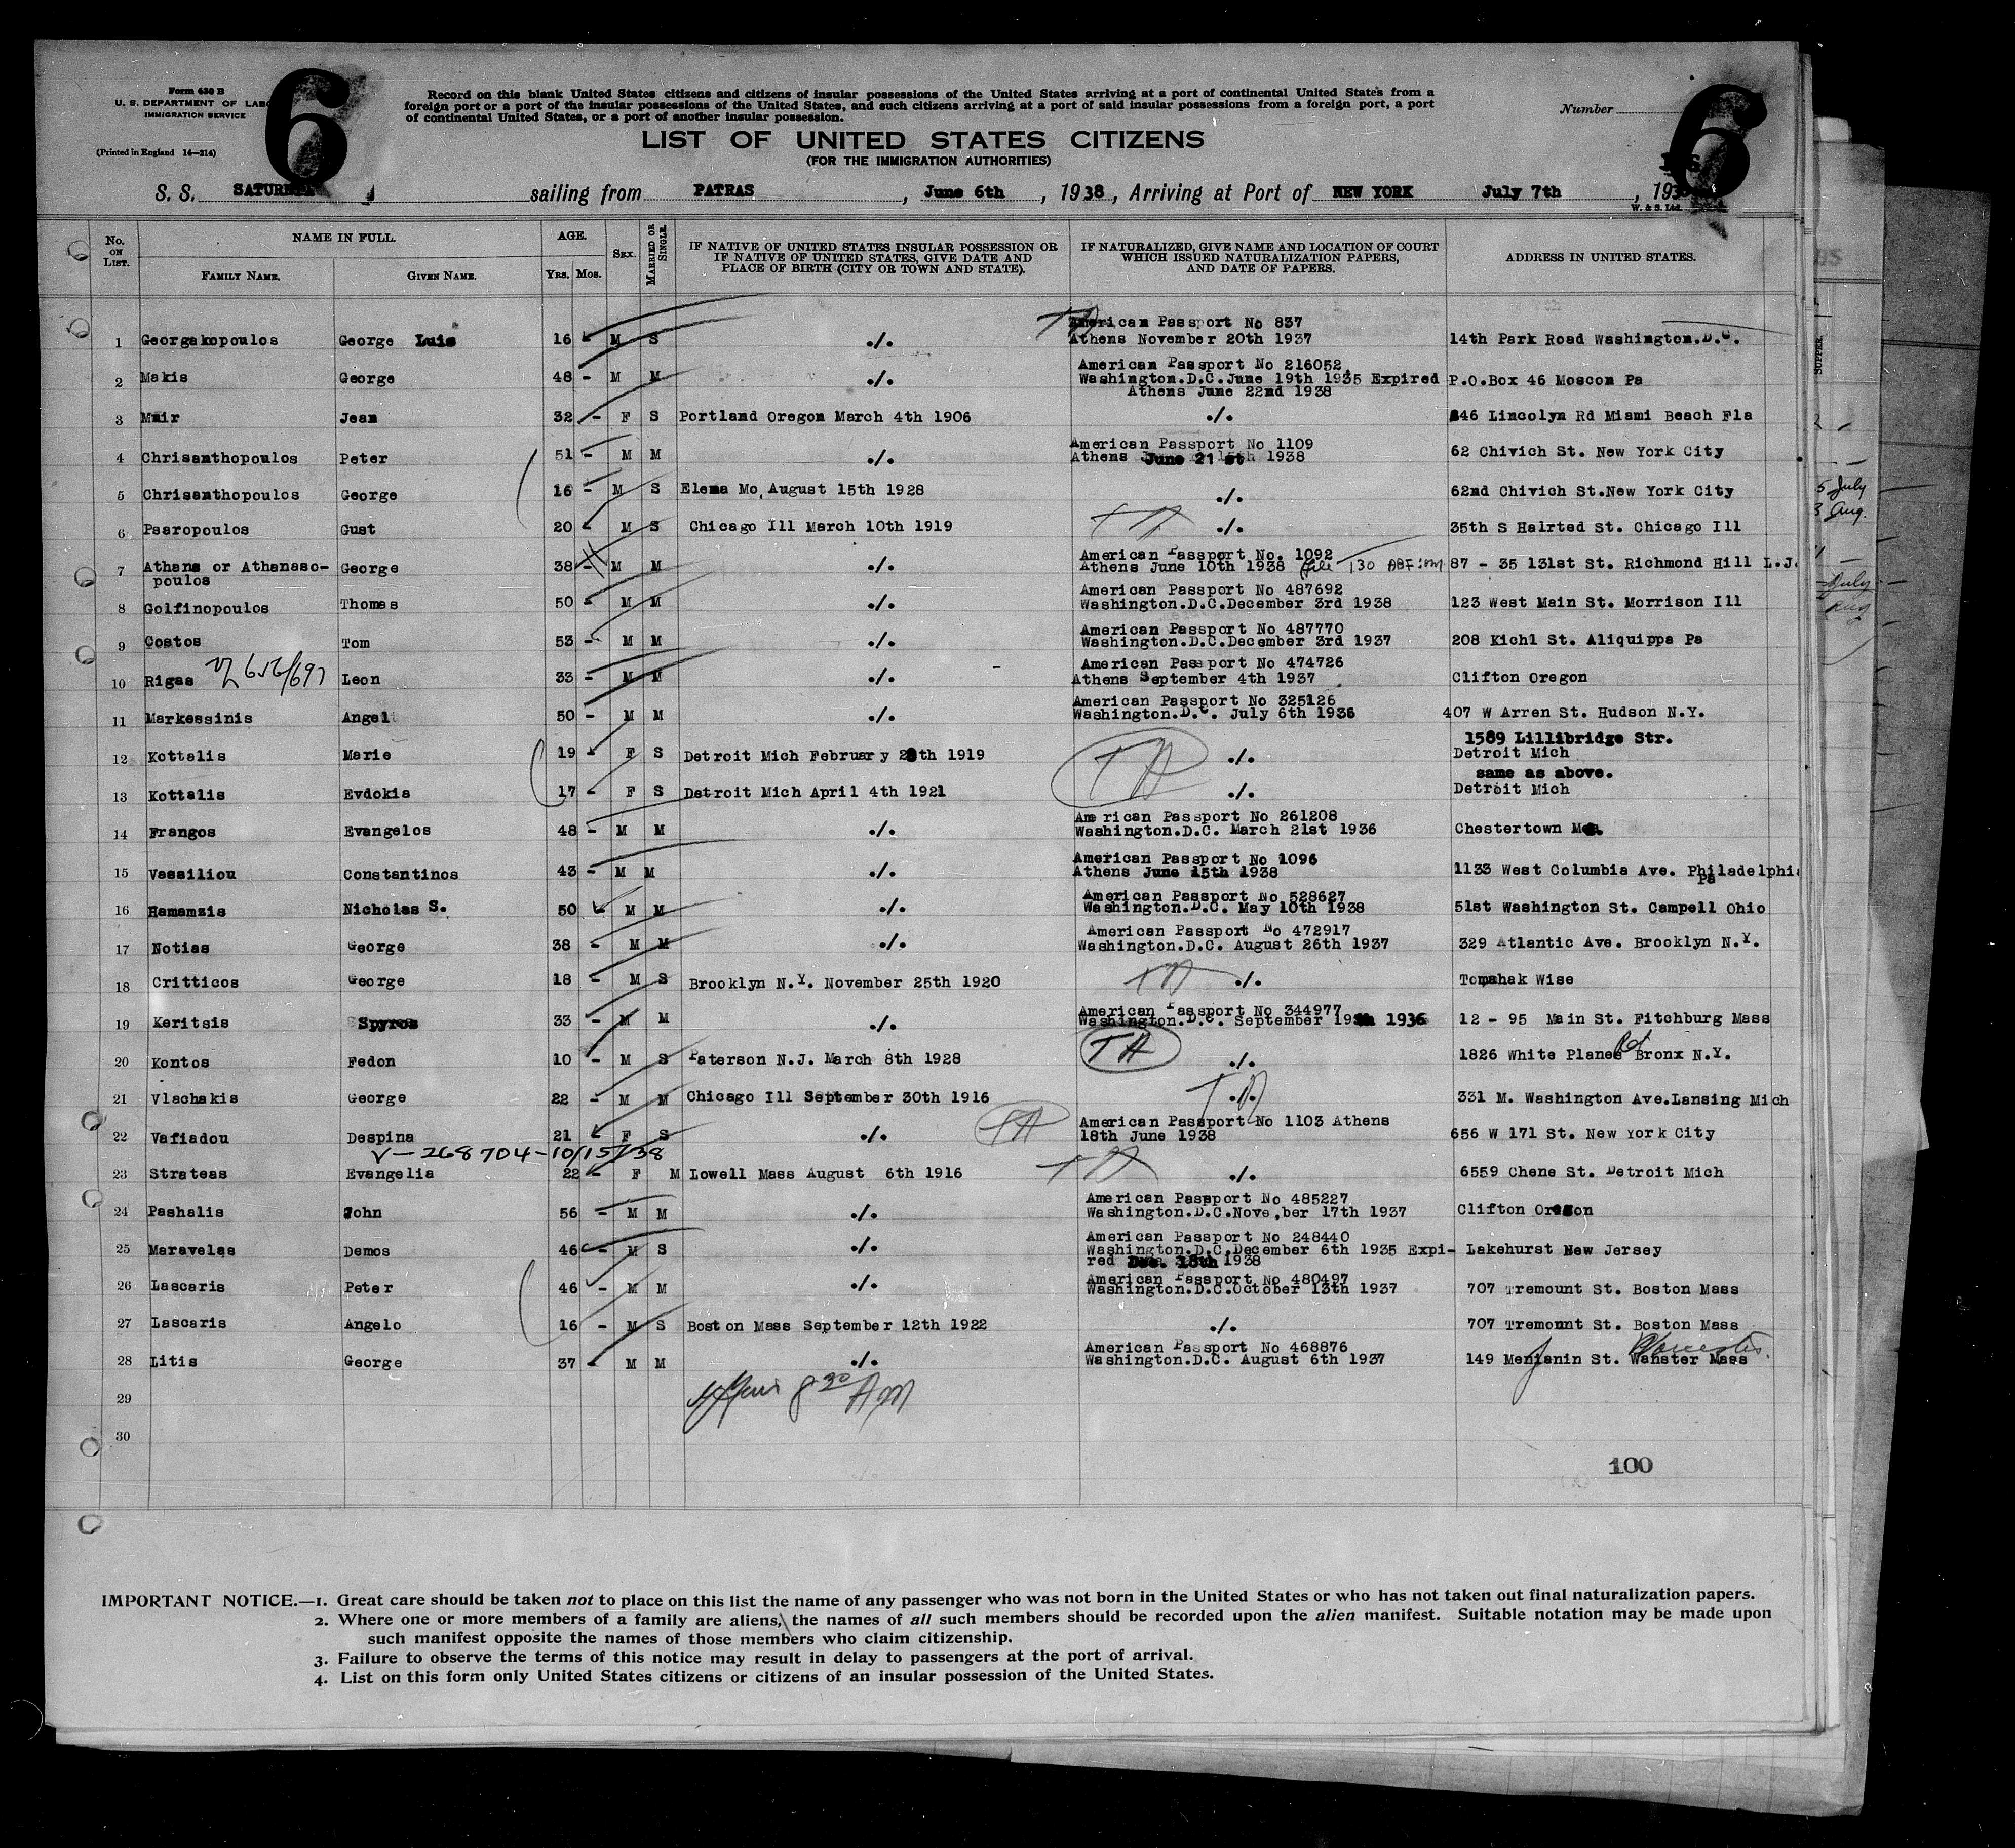 Form 630 B
U. S. DEPARTMENT OF LABO
IMMIGRATION SERVICE
(Printed in England 14—214)
6
6
Record on this blank United States citizens and citizens of insular possessions of the United States arriving at a port of continental United States from a
foreign port or a port of the insular possessions of the United States, and such citizens arriving at a port of said insular possessions from a foreign port, a port
of continental United States, or a port of another insular possession.
Number
LIST OF UNITED STATES CITIZENS
(FOR THE IMMIGRATION AUTHORITIES)
S. S. SATURNIA sailing from PATRAS, June 6th, 1938, Arriving at Port of NEW YORK July 7th, 193
W. & S. Ltd.
No. ON LIST. NAME IN FULL. FAMILY NAME. GIVEN NAME. AGE. YRS. MOS. SEX. MARRIED OR SINGLE. IF NATIVE OF UNITED STATES INSULAR POSSESSION OR IF NATIVE OF UNITED STATES, GIVE DATE AND PLACE OF BIRTH (CITY OR TOWN AND STATE). IF NATURALIZED, GIVE NAME AND LOCATION OF COURT WHICH ISSUED NATURALIZATION PAPERS, AND DATE OF PAPERS. ADDRESS IN UNITED STATES.
1 Georgakopoulos George Luis 16 M S ./. TA American Passport No 837 Athens November 20th 1937 14th Park Road Washington.D.C.
2 Makis George 48 - M M ./. American Passport No 216052 Washington.D.C.June 19th 1935 Expired Athens June 22nd 1938 P.O.Box 46 Moscom Pa
3 Muir Jean 32 - F S Portland Oregon March 4th 1906 ./. 846 Lincolyn Rd Miami Beach Fla
4 Chrisanthopoulos Peter 51 - M M ./. American Passport No 1109 Athens June 21 st 1938 62 Chivich St. New York City
5 Chrisanthopoulos George 16 - M S Elema Mo, August 15th 1928 ./. 62nd Chivich St.New York City
6 Psaropoulos Gust 20 - M S Chicago Ill March 10th 1919 TA ./. 35th S Halrted St. Chicago Ill
7 Athans or Athanaso-poulos George 38 - M M ./. American Passport No. 1092 Athens June 10th 1938 87 - 35 131st St. Richmond Hill L.J.
8 Golfinopoulos Thomas 50 - M M ./. American Passport No 487692 Washington.D.C.December 3rd 1938 123 West Main St. Morrison Ill
9 Costos Tom 53 - M M ./. American Passport No 487770 Washington.D.C.December 3rd 1937 208 Kichl St. Aliquippa Pa
10 Rigas Leon 33 - M M ./. American Passport No 474726 Athens September 4th 1937 Clifton Oregon
11 Markessinis Angel 50 - M M ./. American Passport No 325126 Washington.D.C. July 6th 1936 407 W Arren St. Hudson N.Y.
12 Kottalis Marie 19 - F S Detroit Mich February 28th 1919 TA ./. 1589 Lillibridge Str. Detroit Mich
13 Kottalis Evdokia 17 - F S Detroit Mich April 4th 1921 ./. same as above. Detroit Mich
14 Frangos Evangelos 48 - M M ./. American Passport No 261208 Washington.D.C. March 21st 1936 Chestertown
15 Vassiliou Constantinos 43 - M M ./. American Passport No 1096 Athens June 15th 1938 1133 West Columbia Ave. Philadelphia Pa
16 Hamamzis Nicholas S. 50 M M ./. American Passport No 528627 Washington.D.C. May 10th 1938 51st Washington St. Campell Ohio
17 Notias George 38 - M M ./. American Passport No 472917 Washington.D.C. August 26th 1937 329 Atlantic Ave. Brooklyn N.Y.
18 Critticos George 18 - M S Brooklyn N.Y. November 25th 1920 TA ./. Tomahak Wise
19 Keritsis Spyros 33 - M M ./. American Passport No 344977 Washington.D.C. September 19th 1936 12 - 95 Main St. Fitchburg Mass
20 Kontos Fedon 10 - M S Paterson N.J. March 8th 1928 TA ./. 1826 White Planes Rd Bronx N.Y.
21 Vlachakis George 22 - M M Chicago Ill September 30th 1916 TA ./. 331 M. Washington Ave.Lansing Mich
22 Vafiadou Despina 21 F S ./. TA American Passport No 1103 Athens 18th June 1938 656 W 171 St. New York City
V-268704-10/15/38
23 Strateas Evangelia 22 - F M Lowell Mass August 6th 1916 TA ./. 6559 Chene St. Detroit Mich
24 Pashalis John 56 - M M ./. American Passport No 485227 Washington.D.C.Nove,ber 17th 1937 Clifton Oregon
25 Maravelas Demos 46 - M S ./. American Passport No 248440 Washington.D.C.December 6th 1935 Expi-red Dec. 15th 1938 Lakehurst New Jersey
26 Lascaris Peter 46 - M M ./. American Passport No 480497 Washington.D.C.October 13th 1937 707 Tremount St. Boston Mass
27 Lascaris Angelo 16 - M S Boston Mass September 12th 1922 ./. 707 Tremount St. Boston Mass
28 Litis George 37 M M ./. American Passport No 468876 Washington.D.C. August 6th 1937 149 Menjanin St. Wanster Mass Worcester
29
30
8 30 AM
100
IMPORTANT NOTICE.—1. Great care should be taken not to place on this list the name of any passenger who was not born in the United States or who has not taken out final naturalization papers.
2. Where one or more members of a family are aliens, the names of all such members should be recorded upon the alien manifest. Suitable notation may be made upon
such manifest opposite the names of those members who claim citizenship.
3. Failure to observe the terms of this notice may result in delay to passengers at the port of arrival.
4. List on this form only United States citizens or citizens of an insular possession of the United States.